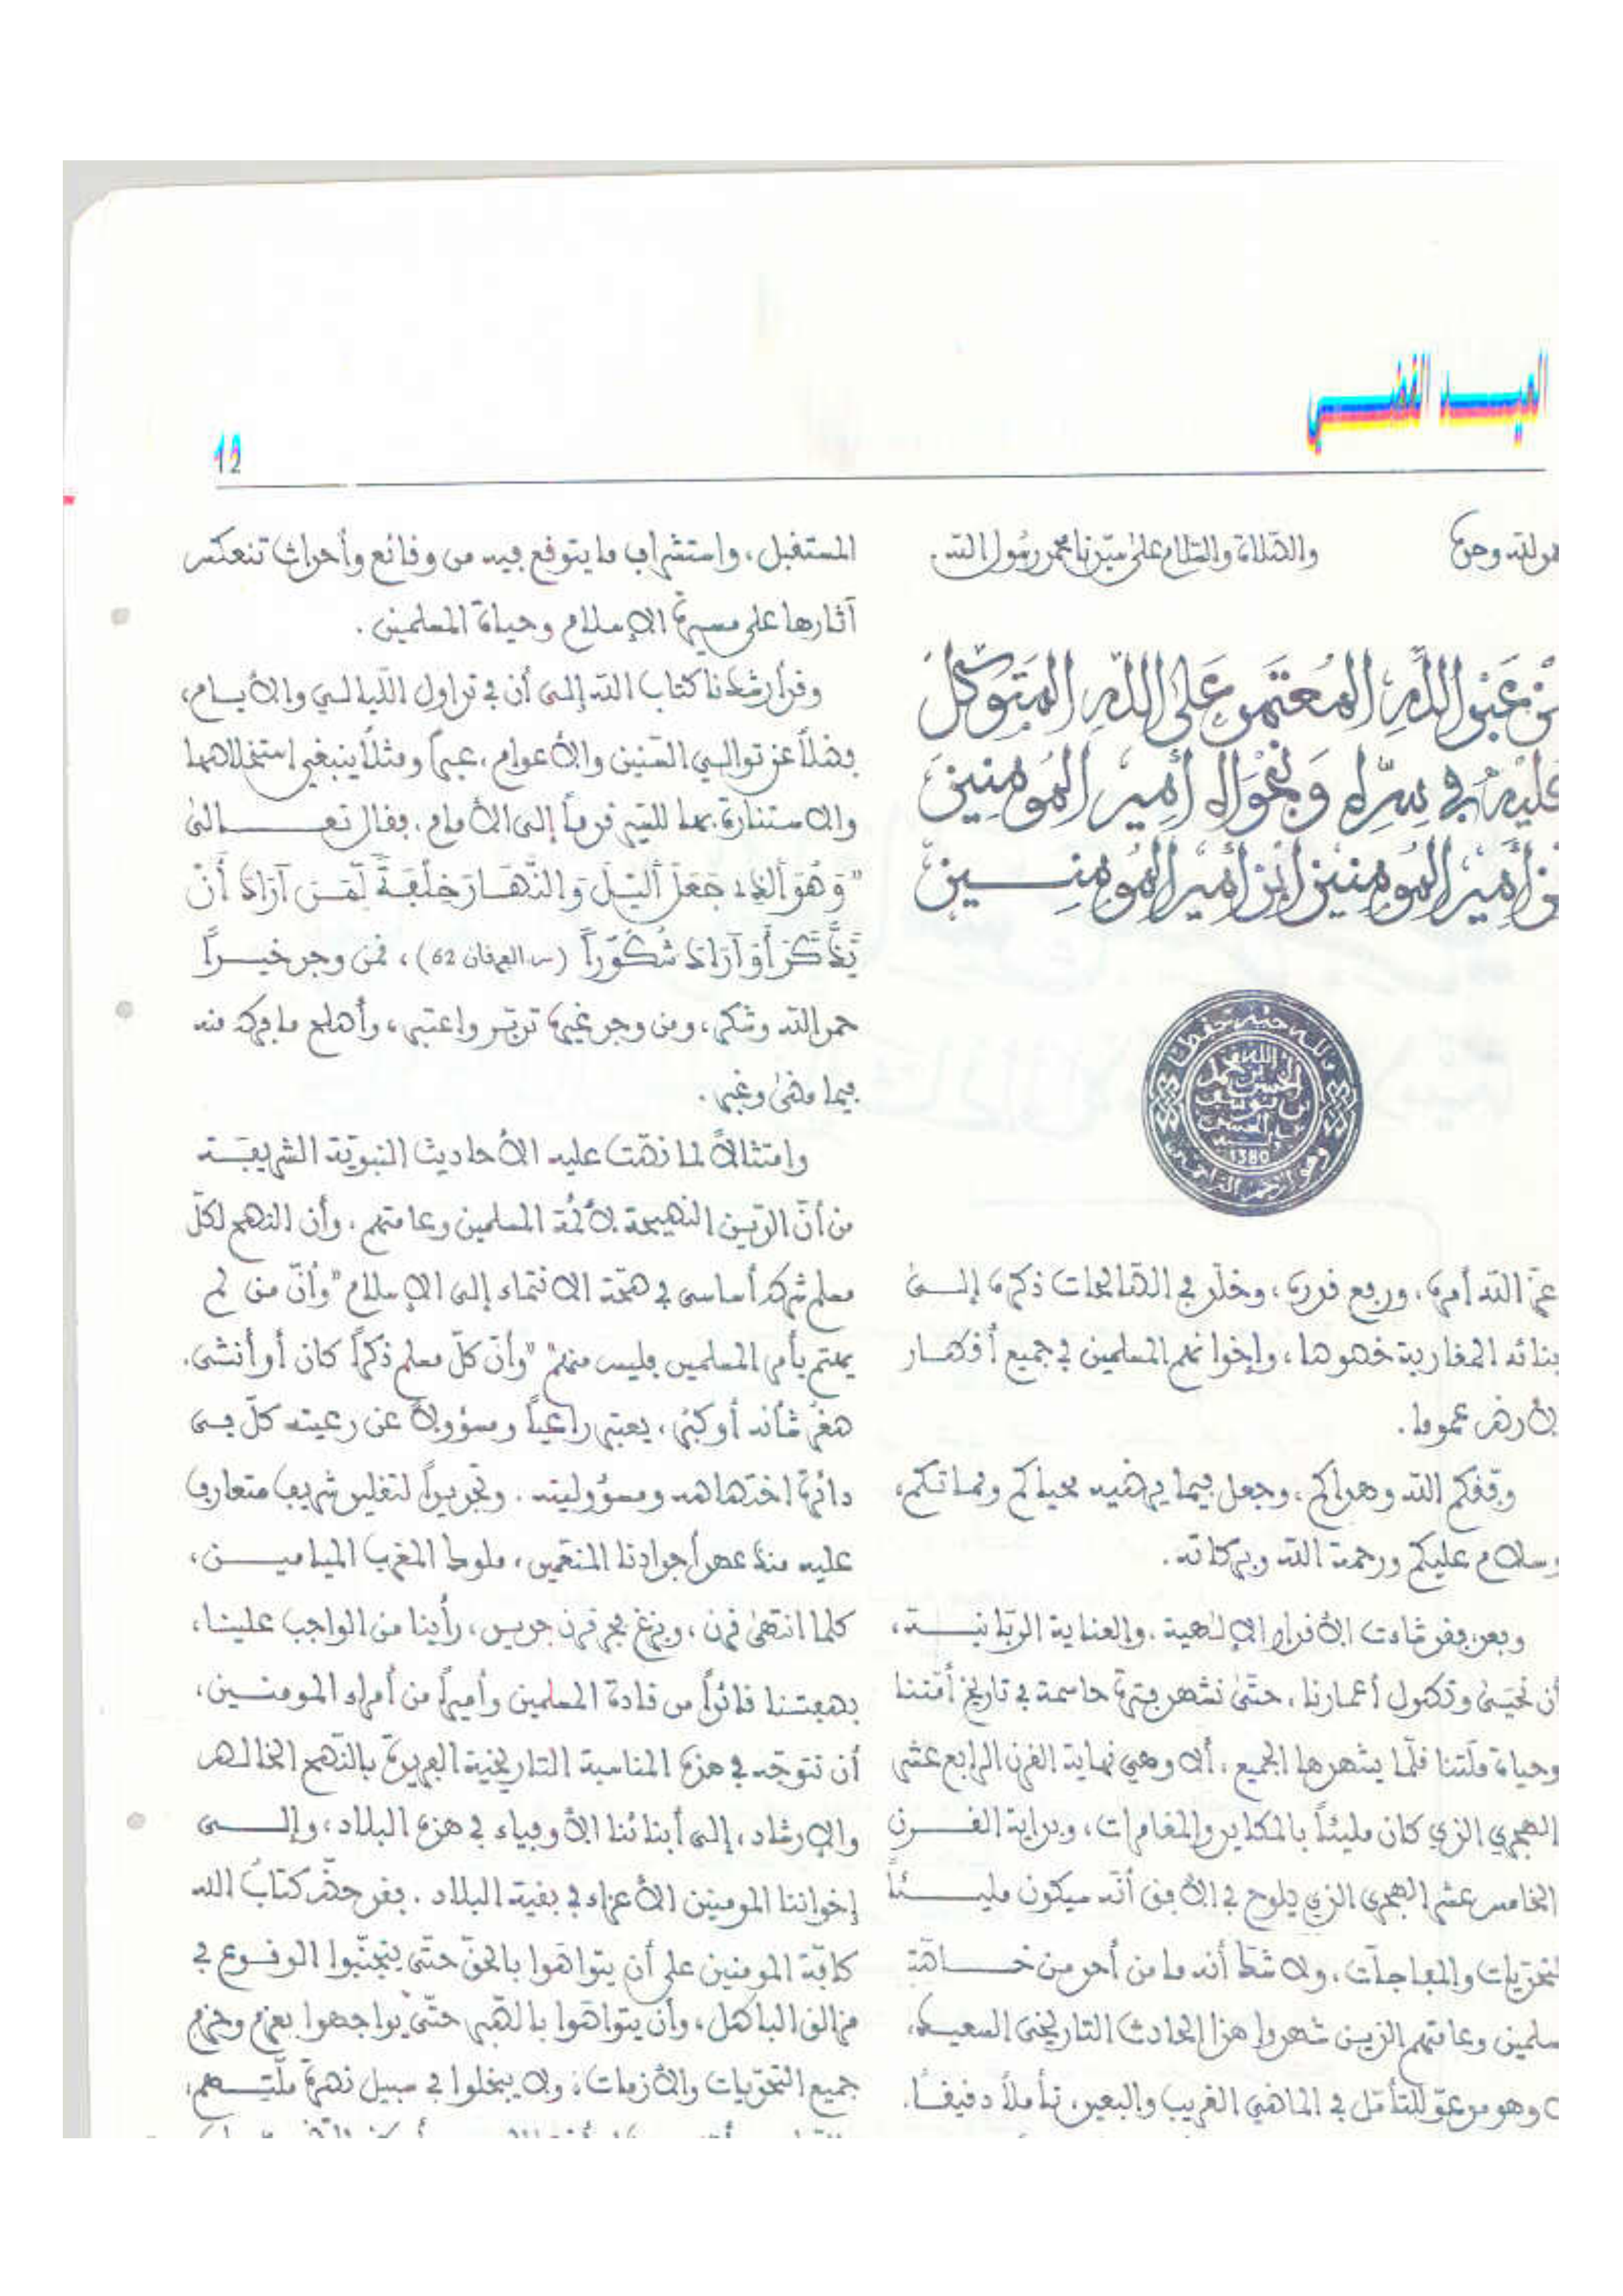 العيـــد الفضـــي
12
والصّلاة والسّلام على سيّدنا محمد رسُول الله.
عَبْدِ اللَّهِ، المُعتَمِدِ عَلى اللَّهِ، المُتَوَكِّلِ
عَليْهِ في سِرِّهِ وَنَجْوَاهُ أمِيرِ المُومِنِينَ
أمِيرِ المُومِنِينَ ابْنِ أمِيرِ المُومِنِـــينَ
الله
الحسن بن محمد
بن يوسف
بن الحسن
1380
عزّ الله أمره، ورفع قدره، وخلّد في الصّالحات ذكره، إلــى
المغاربة خصوصا، وإخوانهم المسلمين في جميع أقطــار
الأرض عموما.
وفّقكم الله وهداكم، وجعل فيما يرضيه محياكم ومماتكم،
وسلام عليكم ورحمة الله وبركاته.
وبعد، فقد شاءت الأقدار الإلهية، والعناية الربّانيـــة،
أن نحيَى وتطول أعمارنا، حتّى نشهد فترة حاسمة في تاريخ أمّتنا
وحياة ملّتنا قلّما يشهدها الجميع، ألا وهي نهاية القرن الرابع عشر
الهجري الذي كان مليئاً بالمكايد والمغامرات، وبداية القـــرن
الخامس عشر الهجري الذي يلوح في الأفق أنّه سيكون مليـــئاً
بالتحدّيات والمفاجآت، ولا شك أنه ما من أحد من خـــاصّة
المسلمين وعامتهم الذيـن شهدوا هذا الحادث التاريخي السعيـد،
وهو مدعوّ للتأمّل في الماضي القريب والبعيد، تأملاً دقيقــا.
المستقبل، واستشراف ما يتوقع فيه من وقائع وأحداث تنعكس
آثارها على مسيرة الإسلام وحياة المسلمين.
وقد أرشدنا كتاب الله إلى أن في تداول اللّيالــي والأيــام،
فضلاً عن توالــي السّنين والأعوام، عبراً ومثلاً ينبغي استخلاصها
والاستنارة بها للسّير قدماً إلى الأمام، فقال تعـــــالى
”وَهُوَ ألذِے جَعَلَ أَليْلَ وَالنَّهَـارَ خِلْفَـةً لِّمَـنَ اَرَادَ أَنْ
يَّذَّكَّرَ أَوَ اَرَادَ شُكُوراً (س. الفرقان 62)، فمن وجد خيـــراً
حمد الله وشكر، ومن وجد غيره تدبّر واعتبر، وأصلح ما فرط منه
فيما مضى وغبر.
وامتثالاً لما نصّت عليه الأحاديث النبويّة الشريفــة
من أنّ الدّين النصيحة لأئمّة المسلمين وعامتهم، وأن النصح لكلّ
مسلم شرط أساسي في صحّة الانتماء إلى الإسلام ”وأنّ من لم
يهتم بأمر المسلمين فليس منهم“ ”وأنّ كلّ مسلم ذكراً كان أو أنثى،
صغر شأنه أو كبُر، يعتبر راعياً ومسؤولاً عن رعيته كلّ فــي
دائرة اختصاصه ومسؤوليته. وتجديداً لتقليد شريف متعارف
عليه منذ عصر أجدادنا المنعّمين، ملوك المغرب الميامـــين،
كلما انتهى قرن، وبزغ فجر قرن جديد، رأينا من الواجب علينا،
بصفتـنا قائداً من قادة المسلمين وأميراً من أمراء المومنــين،
أن نتوجّه في هذه المناسبة التاريخية الفريدة بالنّصح الخالص
والإرشاد، إلى أبنائنا الأوفياء في هذه البلاد، وإلــــى
إخواننا المومنين الأعزاء في بقية البلاد. فقد حذّر كتابُ الله
كافّة المومنين على أن يتواصَوا بالحقّ حتّى يتجنّبوا الوقـوع في
مزالق الباطل، وأن يتواصَوا بالصّبر حتّى يواجهوا بعزم وحزم
جميع التحدّيات والأزمات، ولا يبخلوا في سبيل نصرة ملّتـهم،